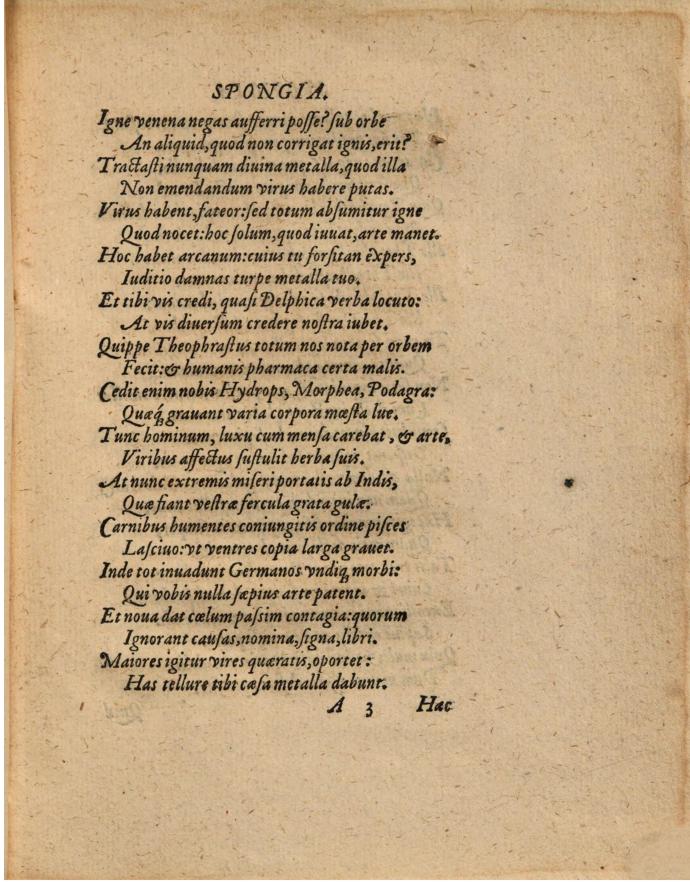 SPONGIA.
Igne venena negas aufferri posse? sub orbe
An aliquid, quod non corrigat ignis, erit?
Tractasti nunquam diuina metalla, quod illa
Non emendandum virus habere putas.
Virus habent, fateor: sed totum absumitur igne
Quod nocet: hoc solum, quod iuuat, arte manet.
Hoc habet arcanum: cuius tu forsitan expers,
Iuditio damnas turpe metalla tuo.
Et tibi vis credi, quasi Delphica verba locuto:
At vis diuersum credere nostra iubet.
Quippe Theophrastus totum nos nota per orbem
Fecit: & humanis pharmaca certa malis.
Cedit enim nobis Hydrops, Morphea, Podagra:
Quæq́; grauant varia corpora mœsta lue.
Tunc hominum, luxu cum mensa carebat, & arte,
Viribus affectus sustulit herba suis.
At nunc extremis miseri portatis ab Indis,
Quæ fiant vestræ fercula grata gulæ.
Carnibus humentes coniungitis ordine pisces
Lasciuo: vt ventres copia larga grauet.
Inde tot inuadunt Germanos vndiq; morbi:
Qui vobis nulla sæpius arte patent.
Et noua dat cœlum passim contagia: quorum
Ignorant causas, nomina, signa, libri.
Maiores igitur vires quæratis, oportet:
Has tellure tibi cæsa metalla dabunt.
A 3 Hac